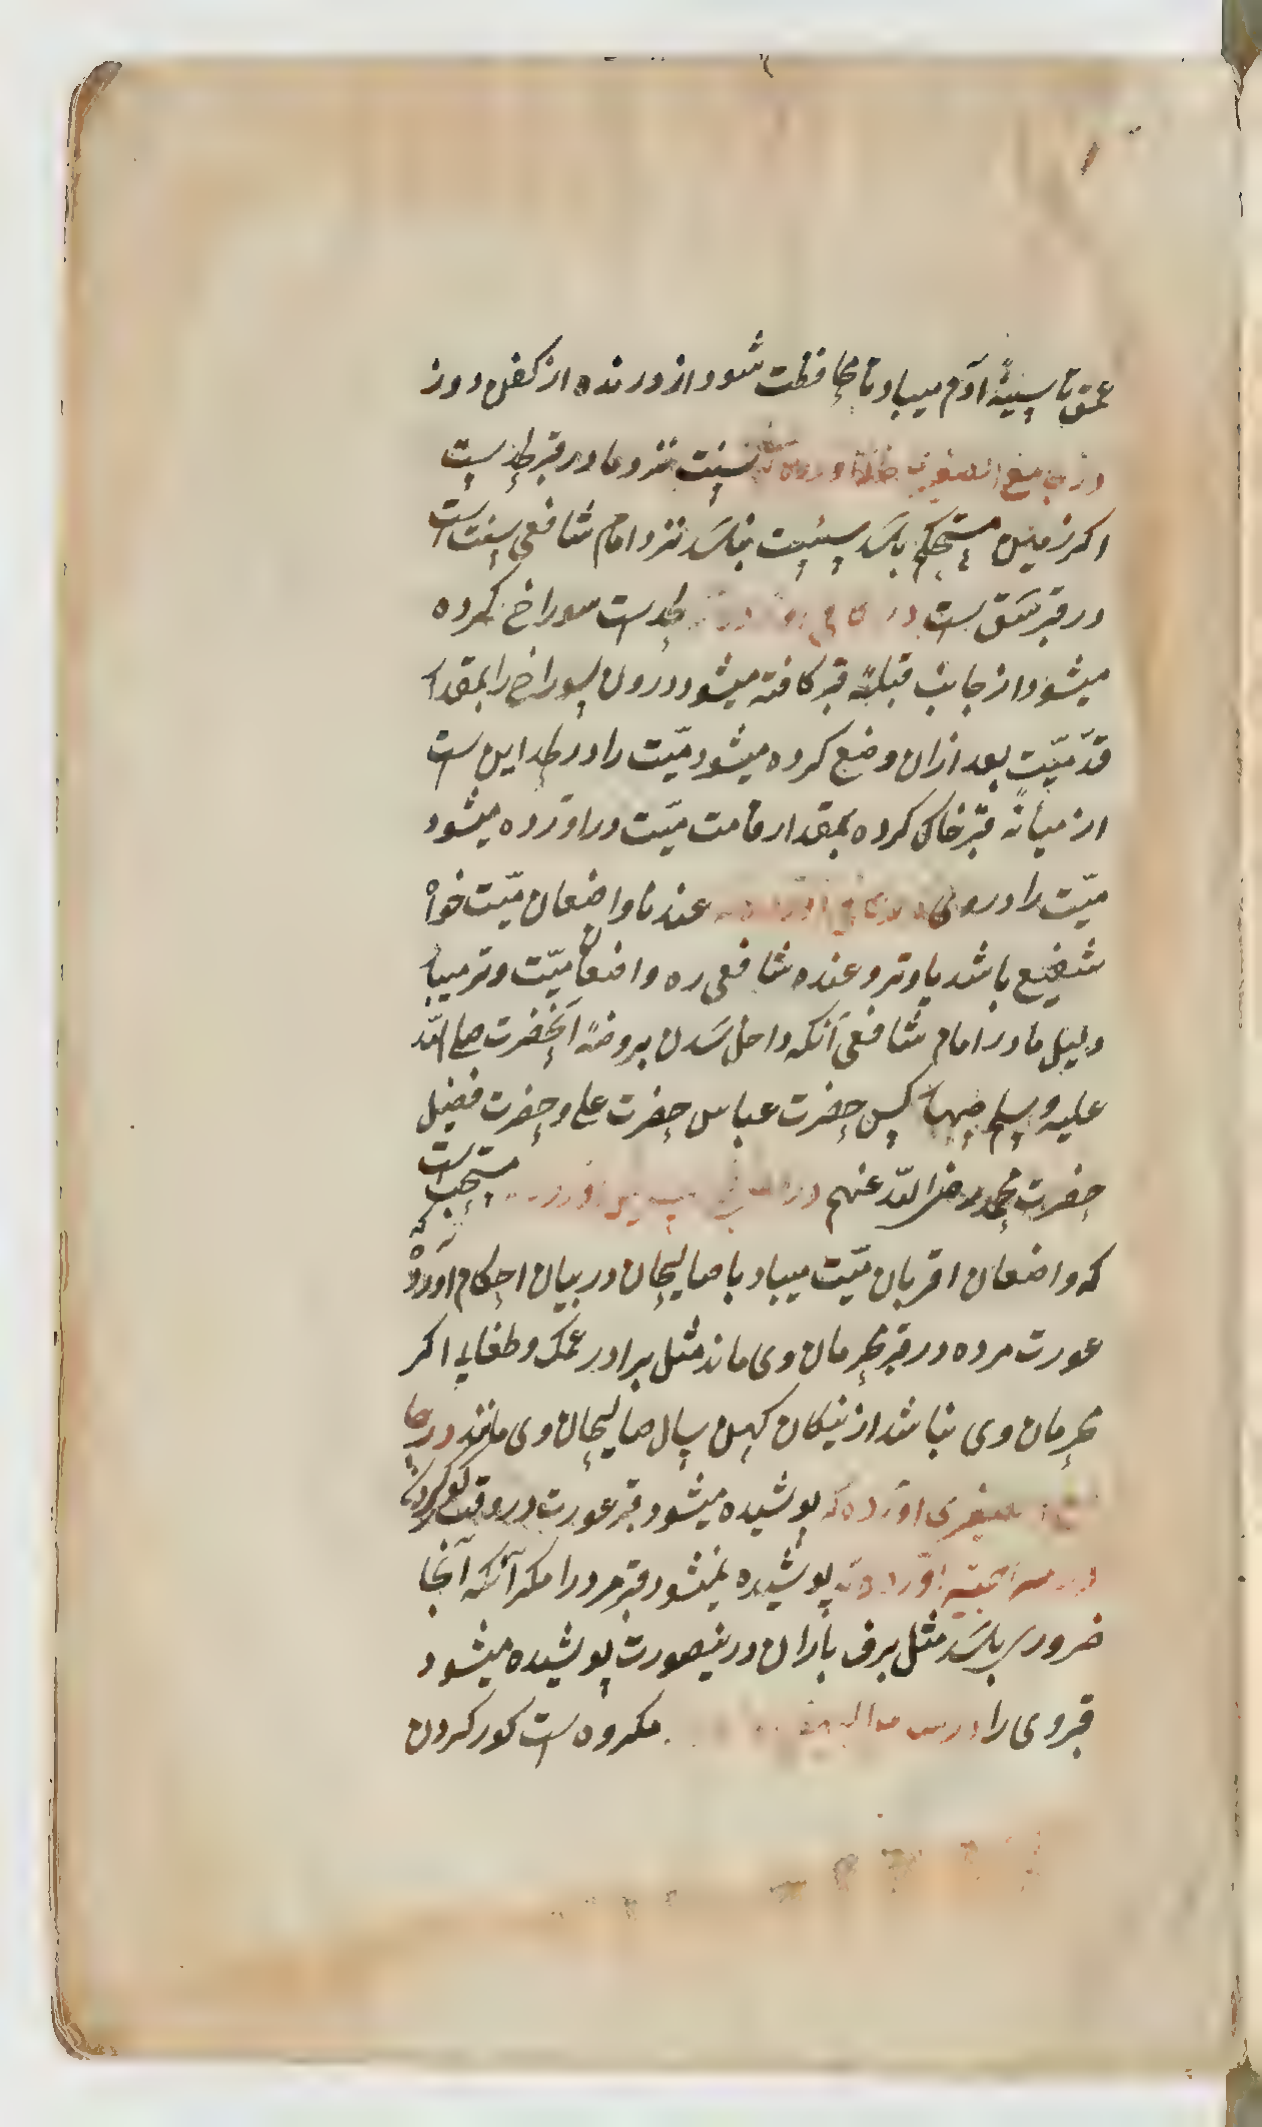 عمق تا سینهٔ آدم میباد تا محافظت شود از درنده از کفن دوز
در جامع الصغیر سنت نزد ما در قبر لحد ست
اکر زمین مستحکم باشد سست نباشد نزد امام شافعی سنت است
در قبر شق ست در کافی لحد ست سوراخ کرده
میشود از جانب قبلهٔ قبر کافته میشود درون سوراخ را بمقدار
قدّ میّت بعد ازان وضع کرده میشود میّت را در لحد این ست
از میانهٔ قبر خاک کرده بمقدار قامت میّت در آورده میشود
میّت را در وی در کافی آورده عندنا واضعان میّت خواه
شفیع باشد یا وتر و عنده شافعی ره واضعان میّت وتر میباد
دلیل ما در امام شافعی آنکه داخل شدن بروضهٔ آنحضرت صلی الله
علیه و سلم چهار کس حضرت عباس حضرت علی و حضرت فضیل
حضرت محمد رضی الله عنهم در مستحب است
که واضعان اقربان میّت میباد با صالیحان در بیان احکام آورده که
عورت مرده در قبر محرمان وی ماند مثل برادر عمک و طغایی اکر
محرمان وی نباشد از نیکان کهن سال صالیحان وی مانند در جا
مع صغیری آورده که پوشیده میشود قبر عورت در وقت کور کردن
در آورده که پوشیده نمیشود قبر مرد را مکر آنکه آنجا
ضرور باشد مثل برف باران درینصورت پوشیده میشود
قبر وی را در مکروه ست کور کردن